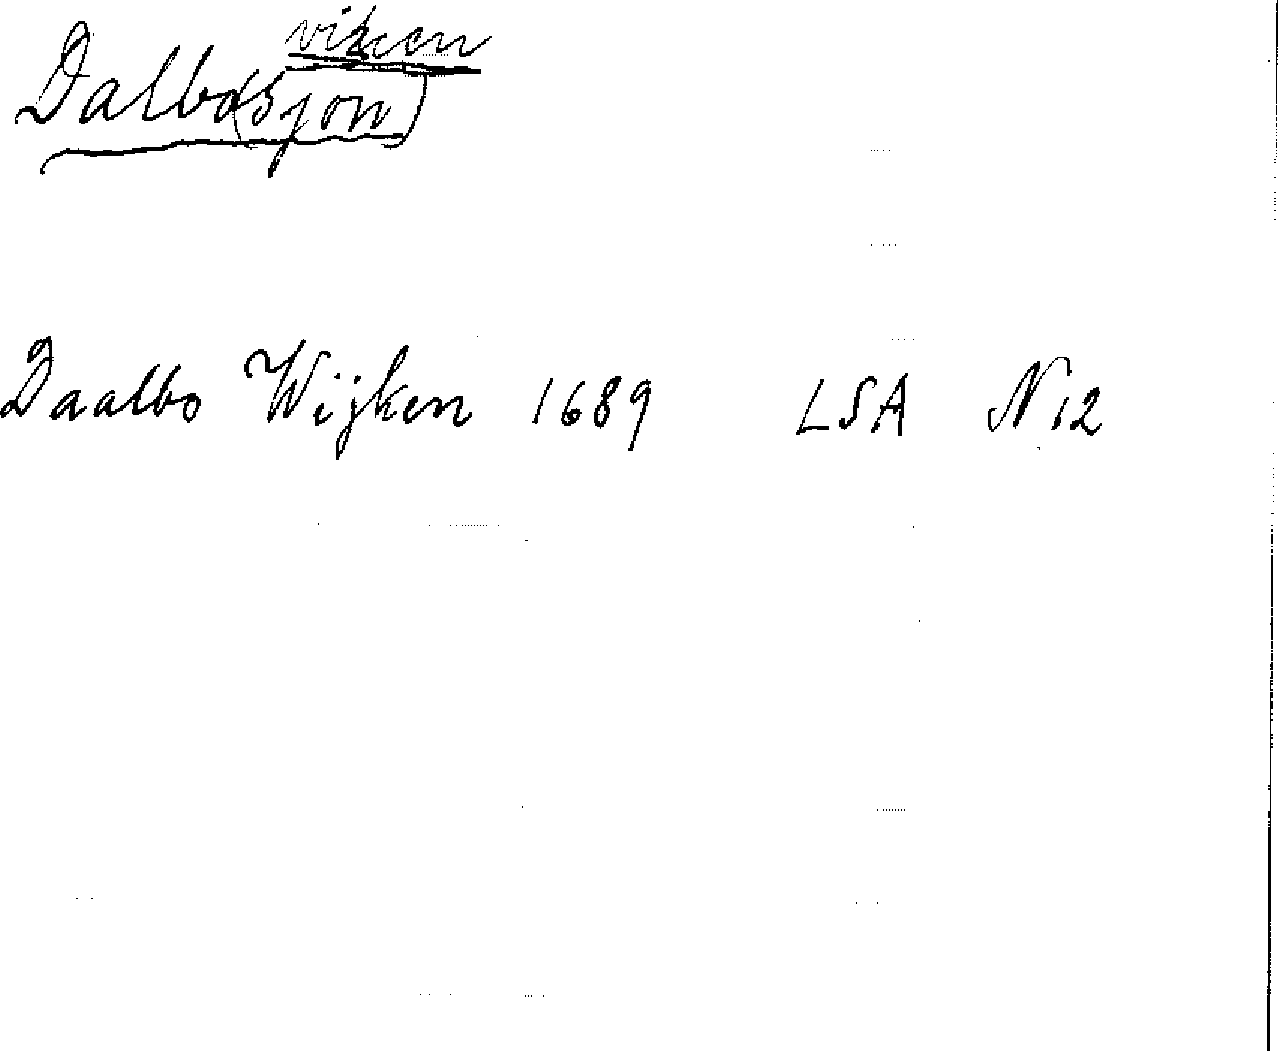 viken
Dalbo(sjon)
Daalbo Wijken 1689 LSA N12